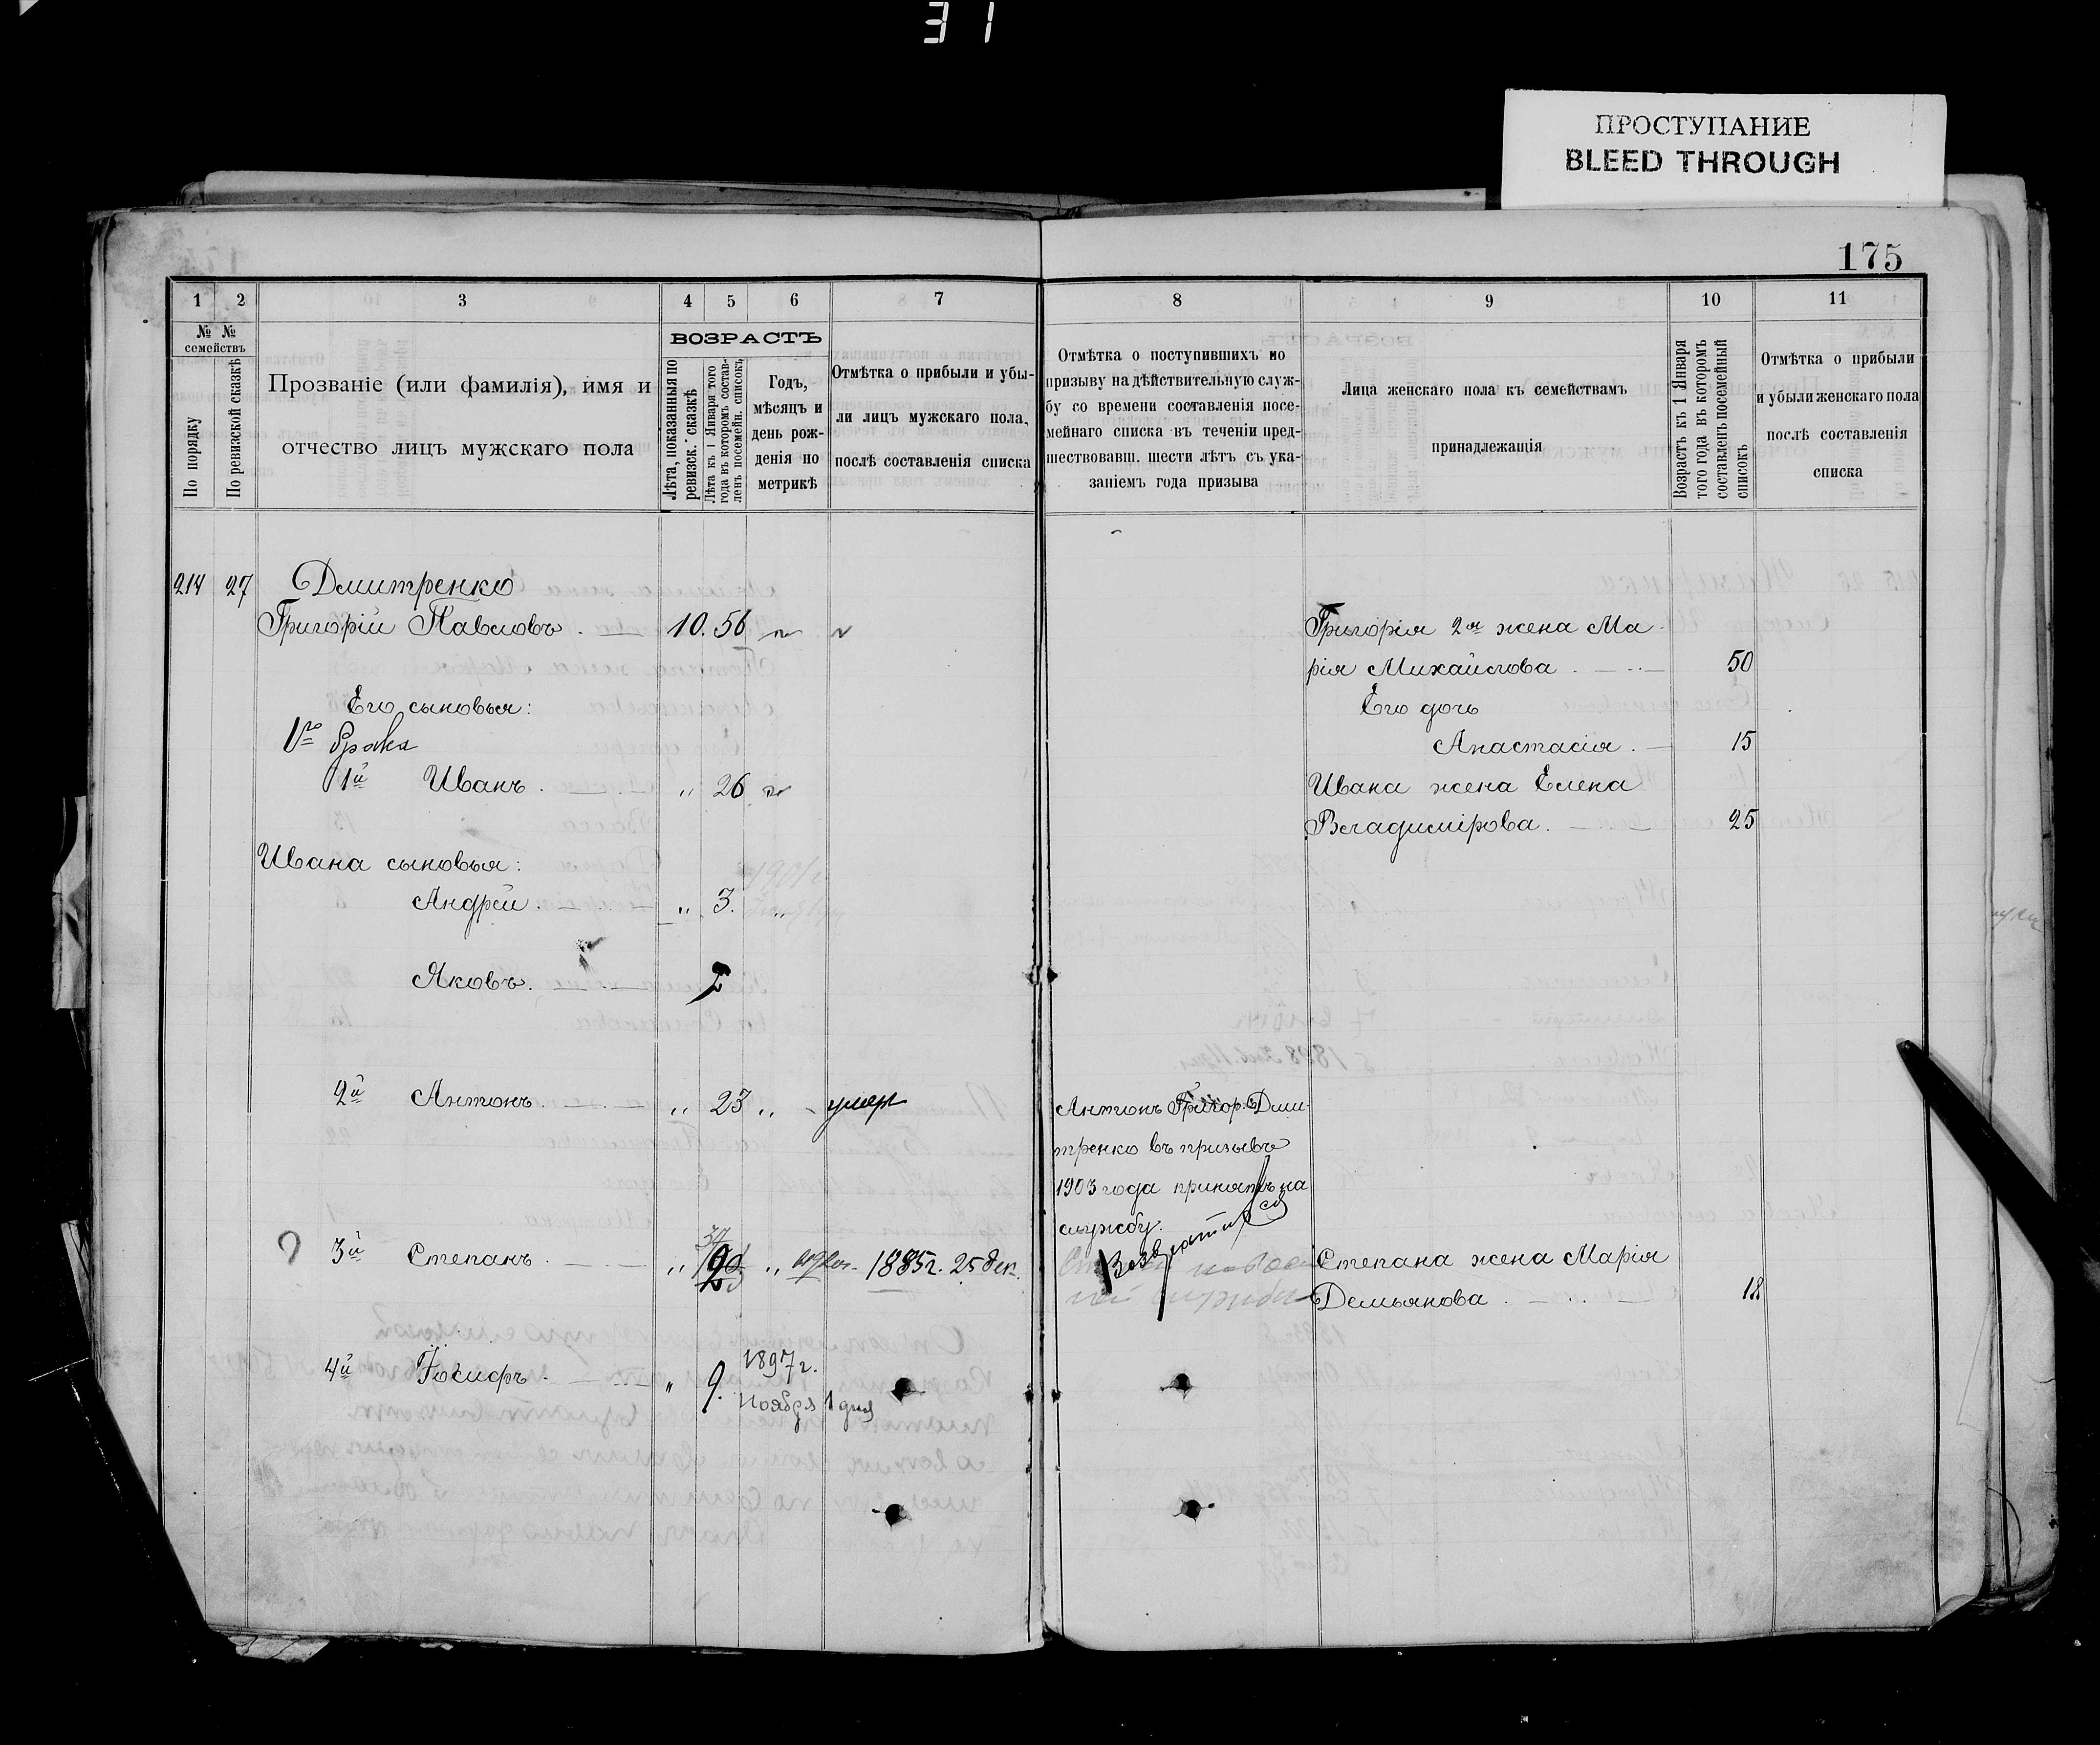 31
ПРОСТУПАНИЕ
BLEED THROUGH
175
1 2 3 4 5 6 7
№ № семействъ
По порядку
По ревизской сказкѣ
Прозваніе (или фамилія), имя и
отчество лицъ мужскаго пола
ВОЗРАСТЪ
Лѣта, показанныя по
ревизск. сказкѣ
Лѣта къ 1 Января того
года въ которомъ состав-
ленъ посемейн. списокъ
Годъ,
мѣсяцъ и
день рож-
денія по
метрикѣ
Отмѣтка о прибыли и убы-
ли лицъ мужскаго пола,
послѣ составленія списка
214 27 Дмитренко
Григорій Павловъ 10. 56
Его сыновья:
1го брака
1й Иванъ. „ 26
Ивана сыновья:
Андрей. „ 3. „
Яковъ. 2
2й Антонъ. „ 23 „ умеръ
3й Степанъ. „ „ 1885г. 25 дек.
4й Іосифъ. „ 9. 1897г.
Ноября 1 дня
8 9 10 11
Отмѣтка о поступившихъ по
призыву на дѣйствительную служ-
бу со времени составленія посе-
мейнаго списка въ теченіи пред-
шествовавш. шести лѣтъ съ ука-
заніемъ года призыва
Лица женскаго пола къ семействамъ
принадлежащія
Возрастъ къ 1 Января
того года въ которомъ
составленъ посемейный
списокъ
Отмѣтка о прибыли
и убыли женскаго пола
послѣ составленія
списка
Григорія 2я жена Ма-
рія Михайлова 50
Его дочь
Анастасія. 15
Ивана жена Елена
Владимірова. 25
Антонъ Григор. Дми-
тренко въ призывѣ
1903 года принятъ на
службу.
Возвратился
Степана жена Марія
Демьянова. 18